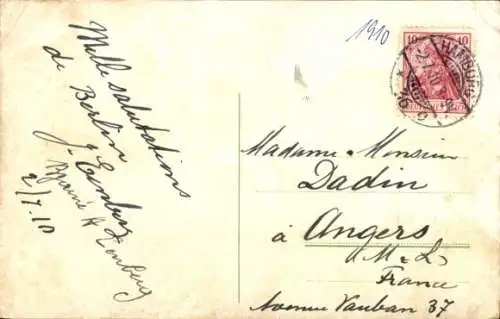 Mille salutations
de Berlin
2/7.10
1910
10 10
HAMBURG
2.7.10
Madame & Monsieur
Dadin
à Angers
M-L
France
Avenue Vauban 37